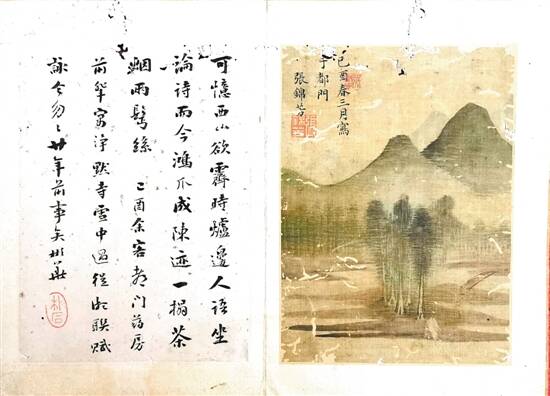 己酉春三月寫
于都門
張錦芳
可憶西山欲霽時爐邊人語坐
論詩而今鴻爪成陳迹一榻茶
烟兩鬢絲 己酉余客都門葯房
前輩寓浄默寺雪中過從相聯賦
詠今匆〻廿年前事矣彬華